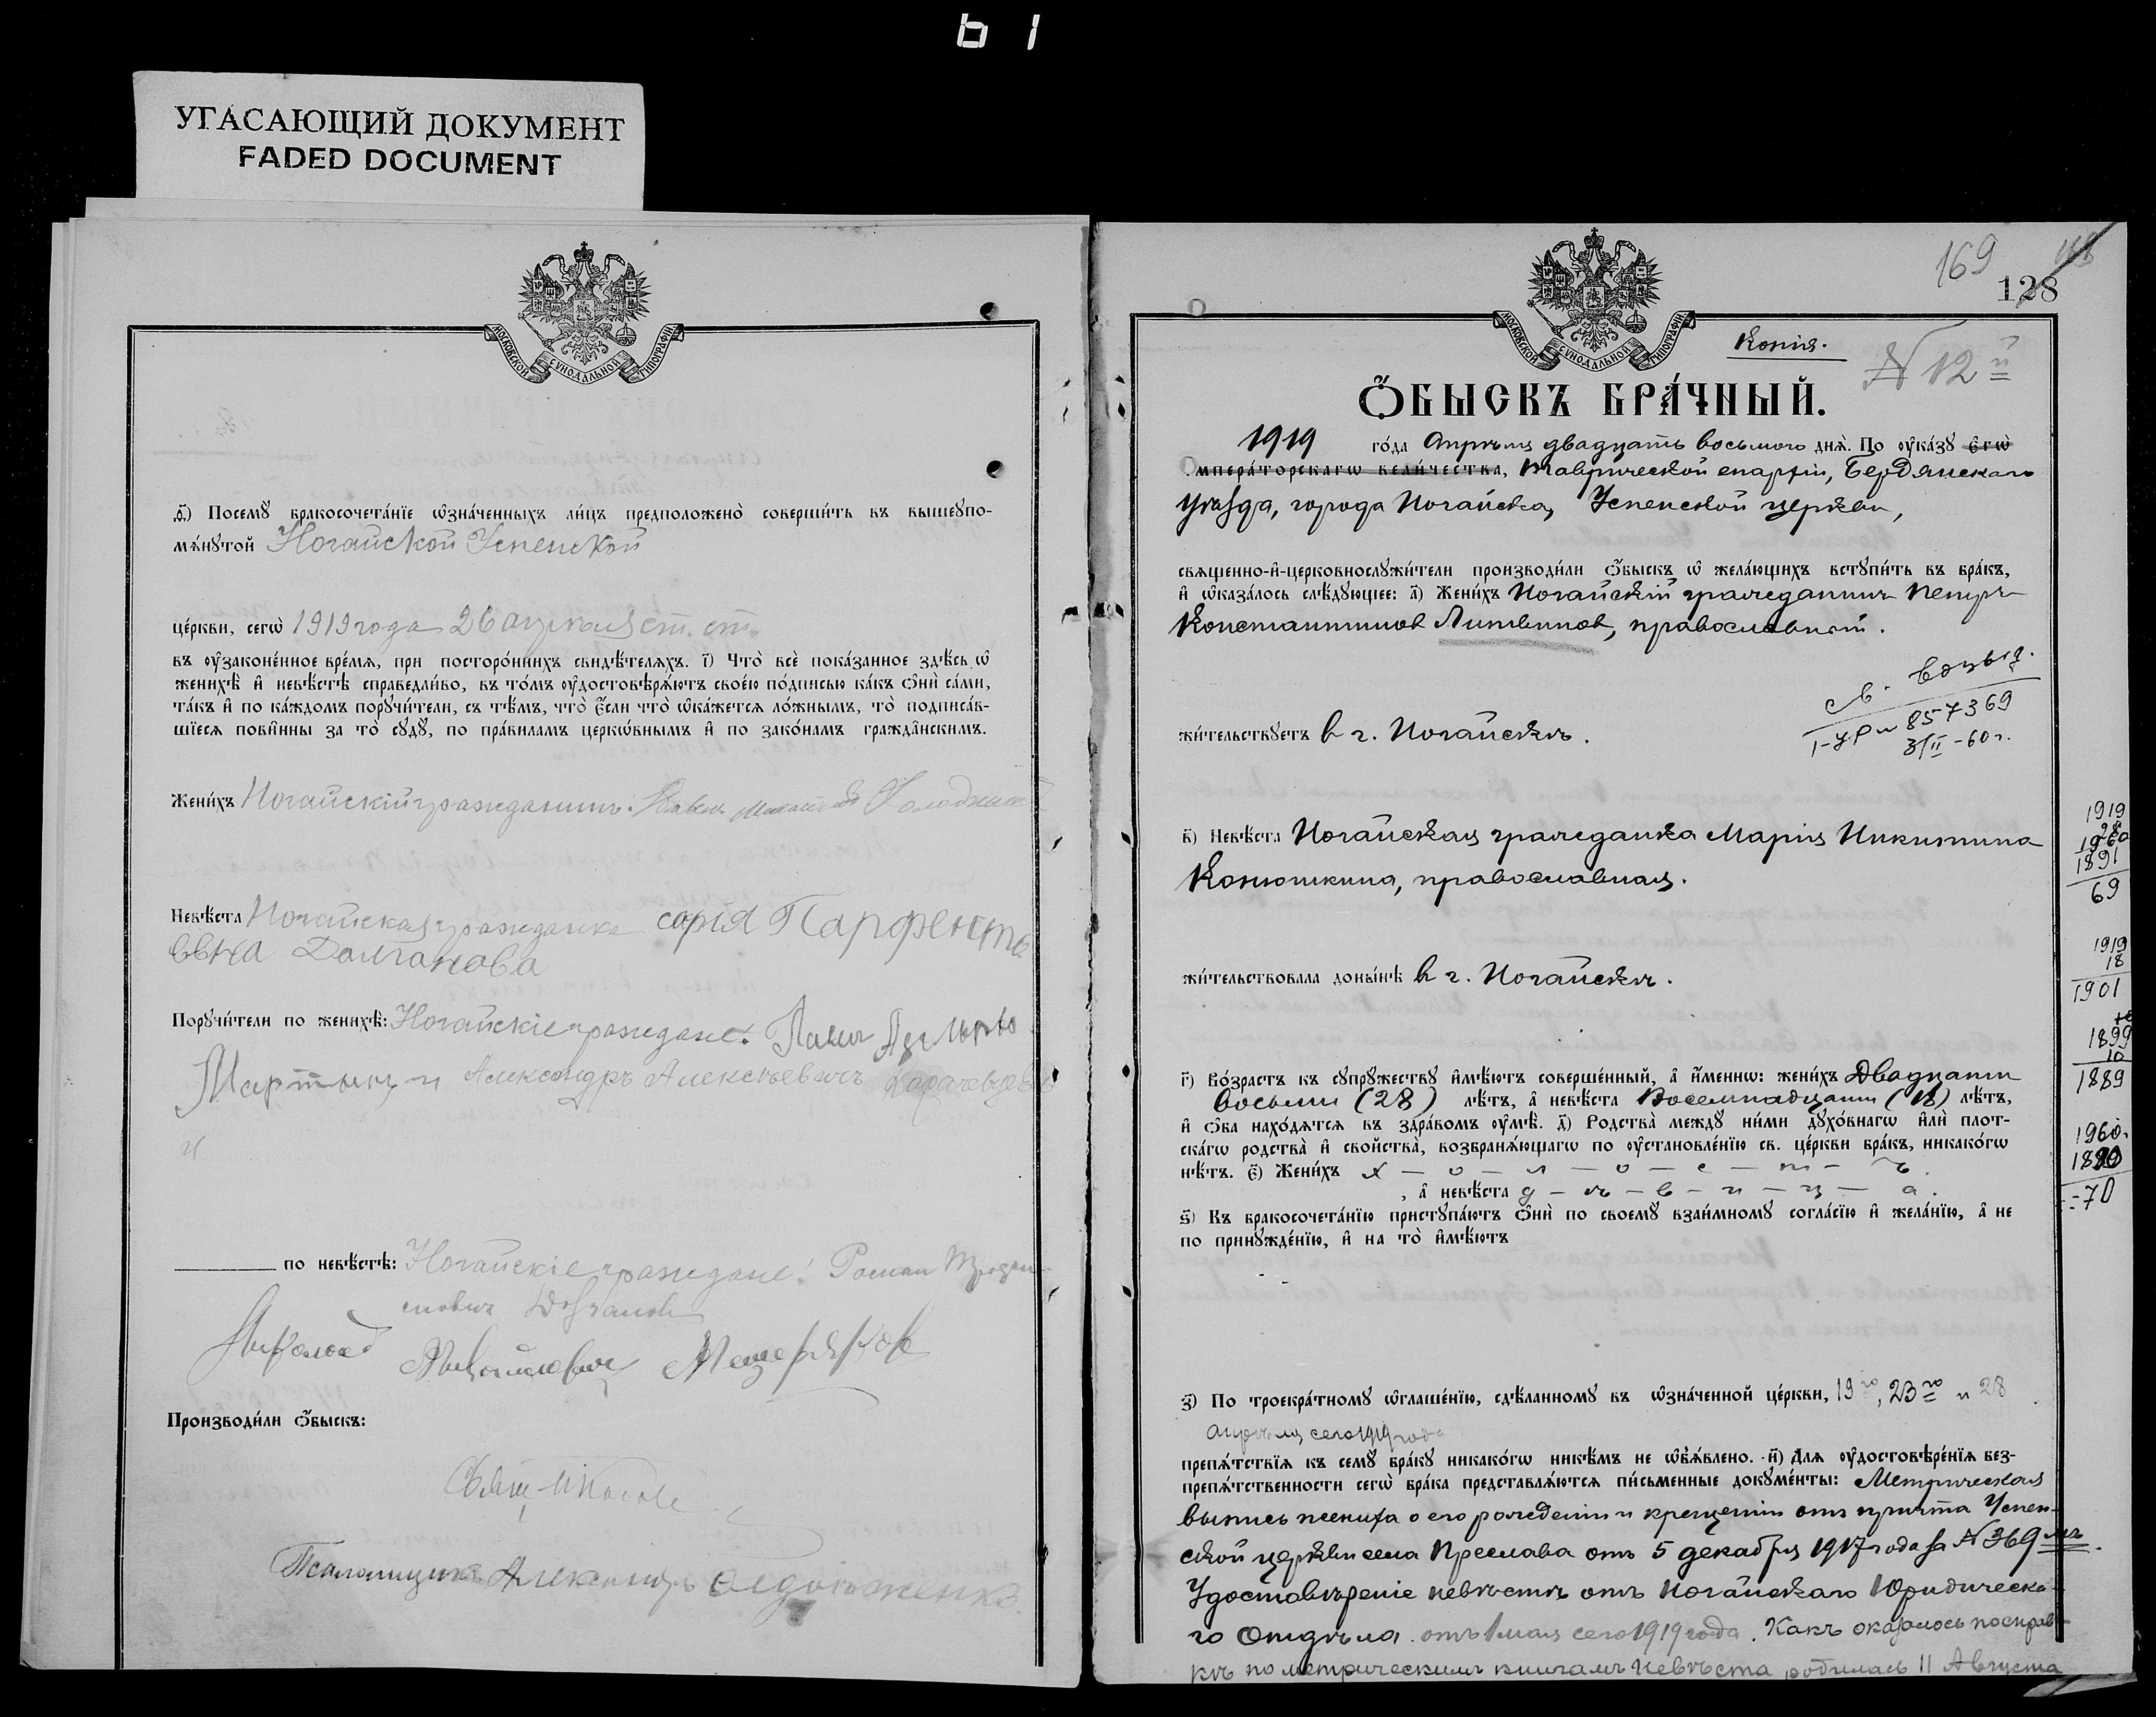 61
УГАСАЮЩИЙ ДОКУМЕНТ
FADED DOCUMENT
МОСКОВСКОЙ СѴНОДАЛЬНОЙ ТИПОГРАФІИ
ѳ҃) Посемꙋ̀ бракосочета́нїе ѡ҆зна́ченныхъ ли́цъ предположено̀ соверши́ть въ вышеꙋпо-
мѧ́нꙋтой Ногайской Успенской
це́ркви, сегѡ̀ 1919 года 26 апрѣля ст. ст.
въ ᲂу҆зако́ненное вре́мѧ, при посторо́ннихъ свидѣ́телѧхъ. і҃) Что̀ всѐ пока́занное здѣ́сь ѡ҆
женихѣ̀ и҆ невѣ́стѣ справедли́во, въ то́мъ ᲂу҆достовѣрѧ́ютъ свое́ю по́дписью ка́къ ѻ҆нѝ са́ми,
та́къ и҆ по ка́ждомъ порꙋчи́тели, съ тѣ́мъ, что̀ є҆́сли что̀ ѡ҆ка́жетсѧ ло́жнымъ, то̀ подписа́в-
шїесѧ пови́нны за то̀ сꙋдꙋ̀, по пра́виламъ церкѡ́внымъ и҆ по зако́намъ гражда̑нскимъ.
Жени́хъ Ногайскій гражданинъ: Павелъ Холодный
Невѣ́ста Ногайская гражданка Софія Парфентье
евна Долганова
Порꙋчи́тели по женихѣ̀: Ногайскіе граждане:
Мартынъ и Александръ Алексѣевичъ
и
по невѣ́стѣ: Ногайскіе граждане: Роман
Николай Михайлович Мещеряков
Производи́ли ѻ҆́быскъ:
Свящ.
Псаломщикъ Александръ
169
128
Копія.
N 12й
МОСКОВСКОЙ СѴНОДАЛЬНОЙ ТИПОГРАФІИ
Ѻ҆́БЫСКЪ БРА́ЧНЫЙ.
1919 го́да Апрѣля двадцать восьмого днѧ̀. По ᲂу҆ка́зꙋ є҆гѡ̀
и҆мпера́торскагѡ вели́чества, Таврической епархіи, Бердянскаго
уѣзда, города Ногайска, Успенской церкви,
свѧще́нно-и҆-церковнослꙋжи́тели производи́ли ѻ҆́быскъ ѡ҆ жела́ющихъ встꙋпи́ть въ бра́къ,
и҆ ѡ҆каза́лось слѣ́дꙋющее: а҃) Жени́хъ Ногайскій гражданинъ Петръ
Константиновъ Литвиновъ, православный.
св. возвр.
I-УР № 857369
3/II-60г.
жи́тельствꙋетъ в г. Ногайскѣ.
в҃) Невѣ́ста Ногайская гражданка Марія Никитина
Конюшкина, православная.
жи́тельствовала доны́нѣ в г. Ногайскѣ.
г҃) Во́зрастъ къ сꙋпрꙋ́жествꙋ и҆мѣ́ютъ соверше́нный, а҆ и҆́меннѡ: жени́хъ Двадцати
восьми (28) лѣ́тъ, а҆ невѣ́ста Восемнадцати (18) лѣ́тъ,
и҆ ѻ҆́ба нахо́дѧтсѧ въ здра́вомъ ᲂу҆мѣ̀. д҃) Родства̀ междꙋ̀ ни́ми дꙋхо́внагѡ и҆лѝ плот-
ска́гѡ родства̀ и҆ сво́йства, возбранѧ́ющагѡ по ᲂу҆становле́нїю св. це́ркви бра́къ, никако́гѡ
нѣ́тъ. є҃) Жени́хъ х — о — л — о — с — т — ъ.
, а҆ невѣ́ста д — ѣ — в — и — ц — а.
ѕ҃) Къ бракосочета́нїю пристꙋпа́ютъ ѻ҆нѝ по своемꙋ̀ взаи́мномꙋ согла́сїю и҆ жела́нїю, а҆ не
по принꙋжде́нїю, и҆ на то̀ и҆мѣ́ютъ
з҃) По троекра́тномꙋ ѡ҆глаше́нїю, сдѣ́ланномꙋ въ ѡ҆зна́ченной це́ркви, 19го, 23го и 28
апрѣля сего 1919 года
препѧ́тствїѧ къ семꙋ̀ бра́кꙋ никако́гѡ никѣ́мъ не ѡ҆б̾ѧ́влено. и҃) Длѧ ᲂу҆достовѣре́нїѧ без-
препѧ́тственности сегѡ̀ бра́ка представлѧ́ютсѧ пи́сьменные докꙋме́нты: Метрическая
выпись жениха о его рожденіи и крещеніи отъ причта Успен-
ской церкви села Преслава отъ 5 декабря 1917 года за N 369мъ.
Удостовѣреніе невѣстѣ отъ Ногайскаго Юридическа-
го Отдѣла. отъ 1 мая сего 1919 года. Какъ оказалось по справ-
кѣ по метрическимъ книгамъ невѣста родилась 11 Августа
1919
28
1960
1891
69
1919
18
1901
1899
10
1889
1960.
1890
-70